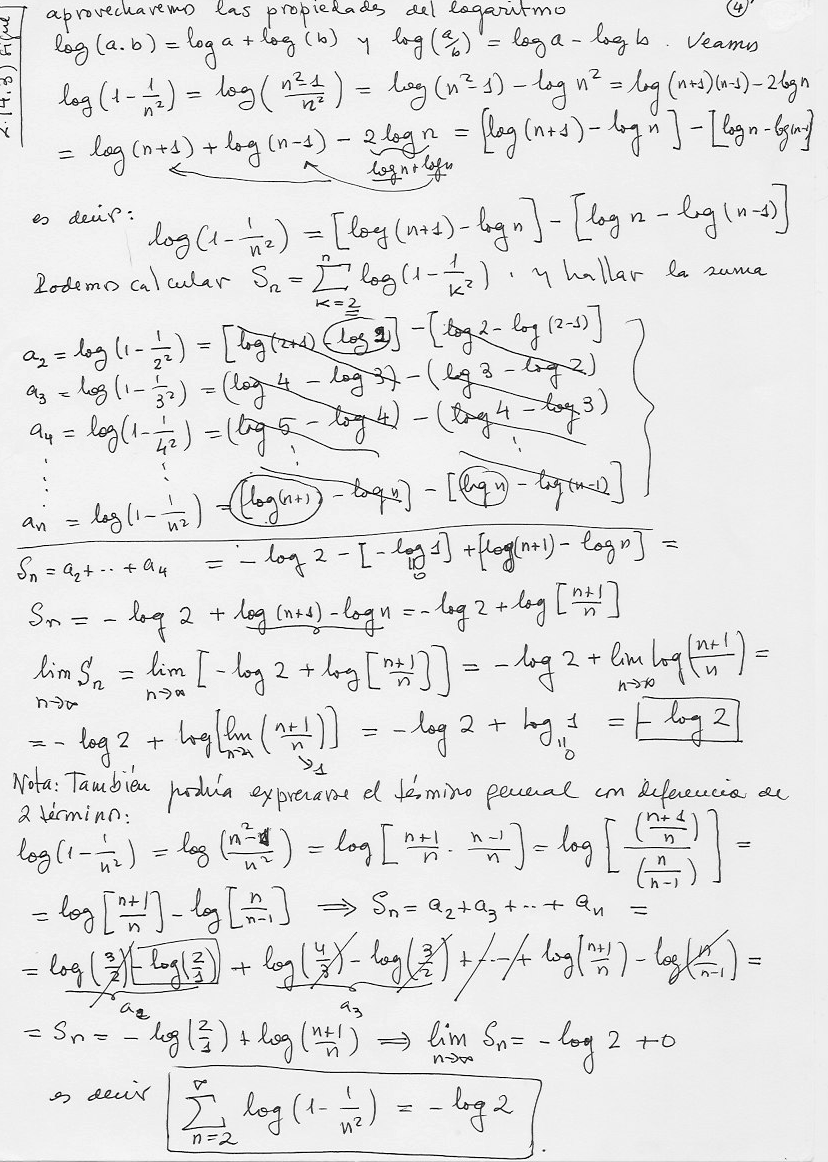 aprovecharemo las propiedades del logaritmo ④
log(a.b) = log a + log(b) y log(a/b) = log a - log b. Veamos
log(1 - 1/n²) = log((n²-1)/n²) = log(n²-1) - log n² = log(n+1)(n-1) - 2log n
= log(n+1) + log(n-1) - 2 log n = [log(n+1) - log n] - [log n - log(n-1)]
log n + log n
es decir:
log(1 - 1/n²) = [log(n+1) - log n] - [log n - log(n-1)]
Podemos calcular Sn = ∑_{k=2}^{n} log(1 - 1/k²). y hallar la suma
a2 = log(1 - 1/2²) = [log(2+1) - log 2] - [log 2 - log(2-1)]
a3 = log(1 - 1/3²) = (log 4 - log 3) - (log 3 - log 2)
a4 = log(1 - 1/4²) = (log 5 - log 4) - (log 4 - log 3)
⋮ ⋮ ⋮ ⋮
an = log(1 - 1/n²) = [log(n+1) - log n] - [log n - log(n-1)]
Sn = a2 + ·· + a4 = - log 2 - [- log 1] + [log(n+1) - log n] =
0
Sn = - log 2 + log(n+1) - log n = - log 2 + log[(n+1)/n]
lim_{n→∞} Sn = lim_{n→∞} [- log 2 + log[(n+1)/n]] = - log 2 + lim_{n→∞} log((n+1)/n) =
= - log 2 + log[lim ((n+1)/n)] = - log 2 + log 1 = - log 2
→1 0
Nota: También podría expresarse el término general con diferencia de
2 término:
log(1 - 1/n²) = log((n²-1)/n²) = log[(n+1)/n · (n-1)/n] = log[((n+1)/n)/(n/(n-1))] =
= log[(n+1)/n] - log[n/(n-1)] ⟹ Sn = a2 + a3 + ·· + an =
= log(3/2) - log(2/1) + log(4/3) - log(3/2) + ··· + log((n+1)/n) - log(n/(n-1)) =
a2 a3
= Sn = - log(2/1) + log((n+1)/n) ⟹ lim_{n→∞} Sn = - log 2 + 0
es decir ∑_{n=2}^{∞} log(1 - 1/n²) = - log 2.